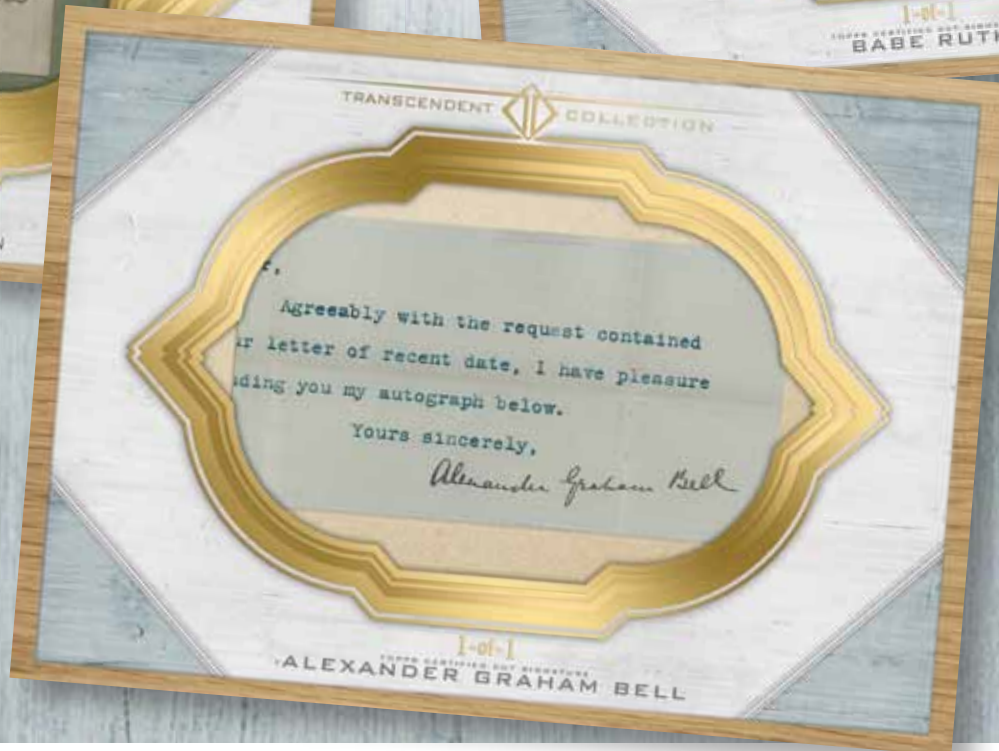 1-of-1
TOPPS CERTIFIED CUT SIGNATURE
BABE RUTH
TRANSCENDENT COLLECTION
r.
Agreeably with the request contained
ur letter of recent date, I have pleasure
ding you my autograph below.
Yours sincerely,
Alexander Graham Bell
1-of-1
TOPPS CERTIFIED CUT SIGNATURE
ALEXANDER GRAHAM BELL